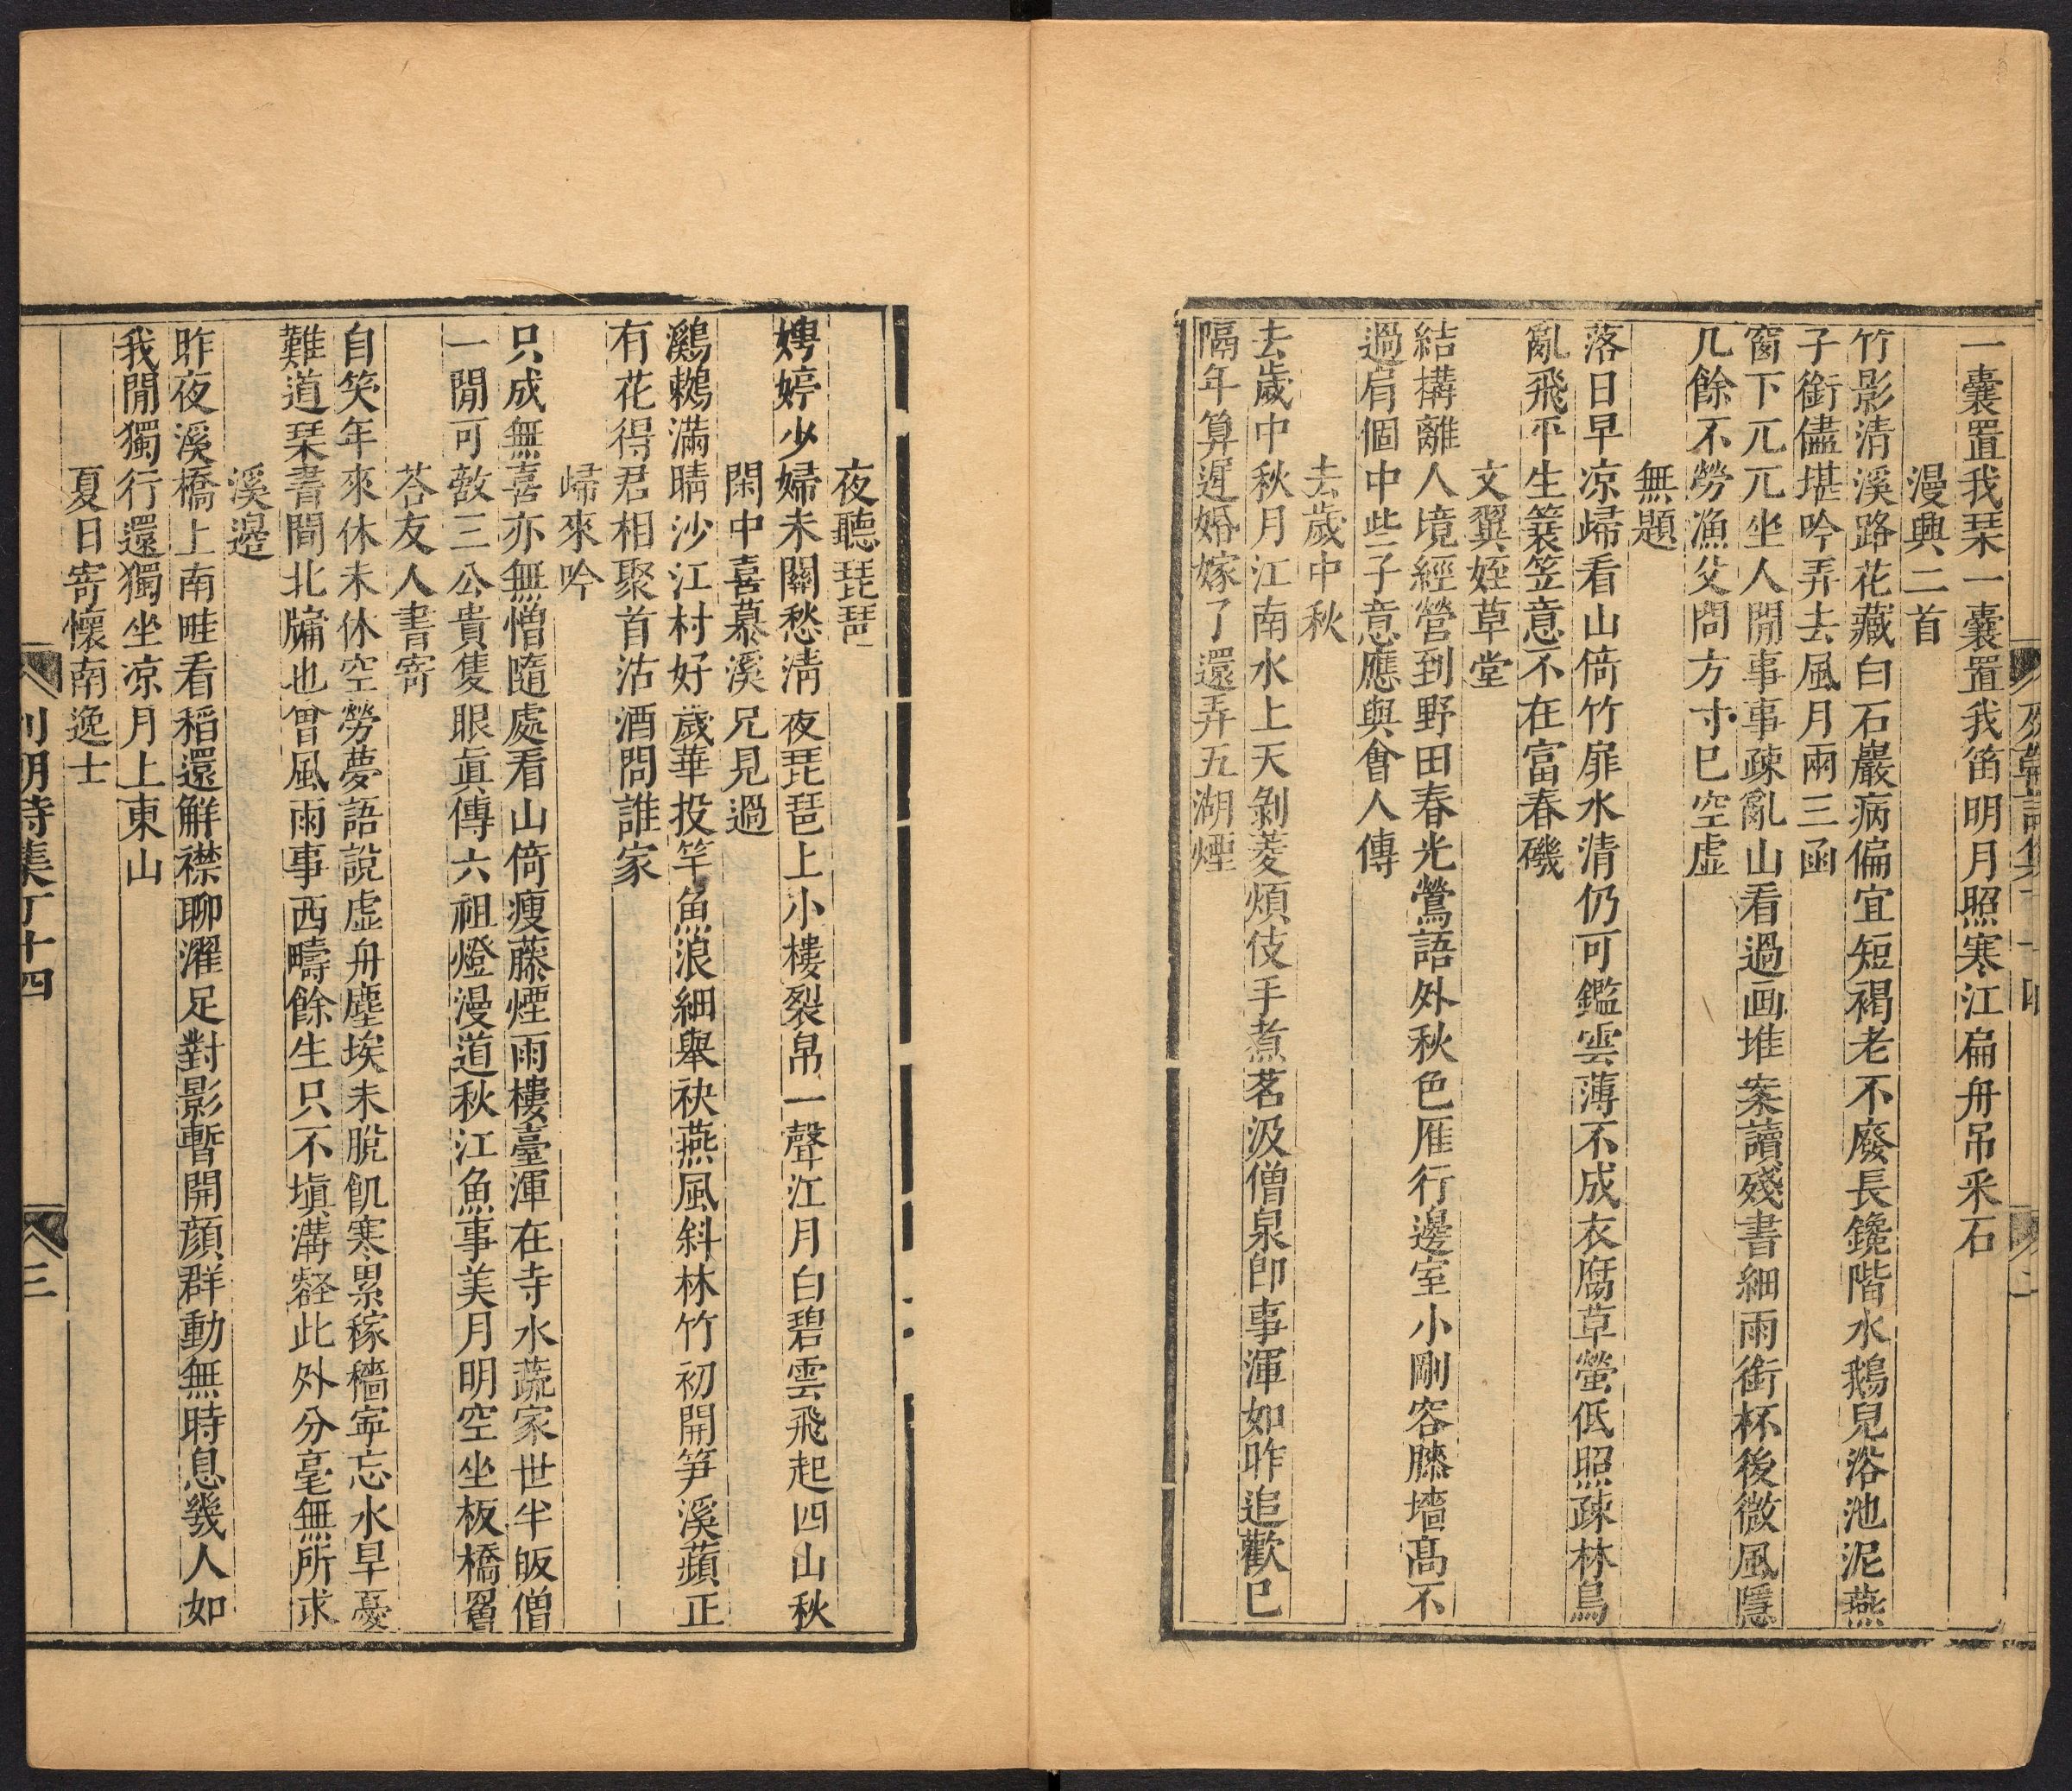 一囊置我琹一囊置我笛明月照寒江扁舟吊采石
漫興二首
竹影清溪路花藏白石巖病偏宜短褐老不廢長鑱階水鵝兒浴池泥燕
子銜儘堪吟弄去風月兩三函
窗下兀兀坐人閒事事疎亂山看過画堆案讀殘書細雨銜杯後微風隱
几餘不勞漁父問方寸已空虛
無題
落日早凉歸看山倚竹扉水清仍可鑑雲薄不成衣腐草螢低照疎林鳥
亂飛平生簑笠意不在富春磯
文翼姪草堂
結搆離人境經營到野田春光鶯語外秋色雁行邊室小剛容膝墻高不
過肩個中些子意應與會人傳
去歲中秋
去歲中秋月江南水上天剝菱煩伎手煮茗汲僧泉即事渾如昨追歡已
隔年算遲婚嫁了還弄五湖煙
夜聽琵琶
娉婷少婦未關愁清夜琵琶上小樓裂帛一聲江月白碧雲飛起四山秋
閑中喜慕溪兄見過
鸂鶒滿晴沙江村好歲華投竿魚浪細舉袂燕風斜林竹初開笋溪蘋正
有花得君相聚首沽酒問誰家
歸來吟
只成無喜亦無憎隨處看山倚瘦藤煙雨樓臺渾在寺水蔬家世半皈僧
一閒可敵三公貴隻眼眞傳六祖燈漫道秋江魚事美月明空坐板橋罾
荅友人書寄
自笑年來休未休空勞夢語說虛舟塵埃未脫飢寒累稼穡寧忘水旱憂
難道琹書間北牖也曾風雨事西疇餘生只不塡溝壑此外分毫無所求
溪邊
昨夜溪橋上南畦看稻還解襟聊濯足對影暫開顔群動無時息幾人如
我閒獨行還獨坐凉月上東山
夏日寄懷南逸士
列朝詩集丁十四
三